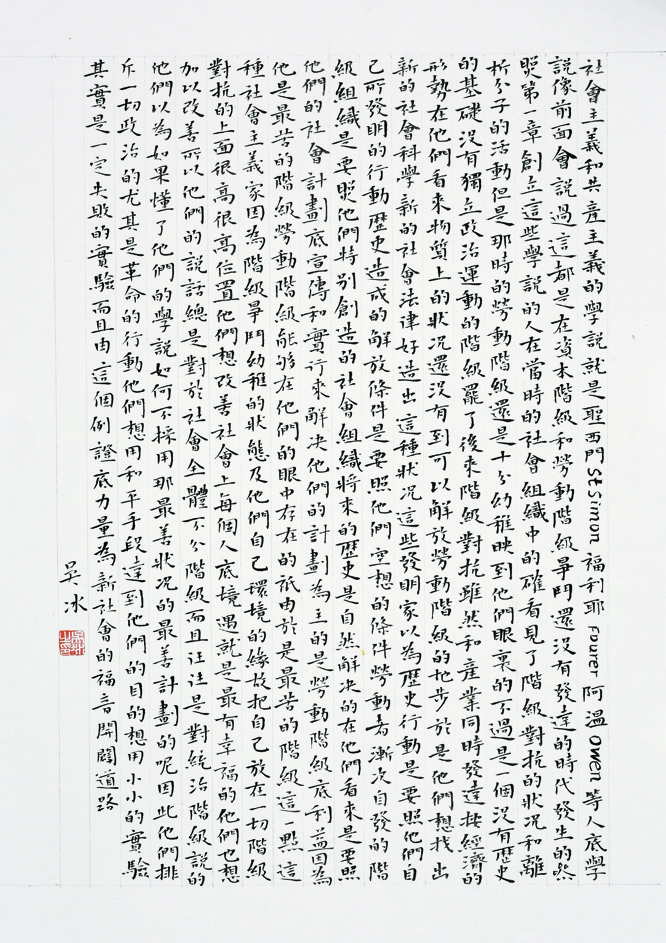 社會主義和共產主義的學說就是聖西門St Simon福利耶Fouyer阿溫Owen等人底學
說像前面會說過這都是在資本階級和勞動階級爭鬥還沒有發達的時代發生的然
煚第一章創立這些學說的人在當時的社會組織中的確看見了階級對抗的狀況和離
析分子的活動但是那時的勞動階級還是十分幼稚映到他們眼裏的不過是一個沒有歷史
的基礎沒有獨立政治運動的階級罷了後來階級對抗雖然和產業同時發達拱經濟的
形勢在他們看來物質上的狀況還沒有到可以解放勞動階級的地步於是他們想找出
新的社會科學新的社會法律好造出這種狀況這些發明家以為歷史行動是要照他們自
己所發明的行動歷史造成的解放條件是要照他們空想的條件勞動者漸次自發的階
級組織是要照他們特別創造的社會組織將來的歷史是自然解決的在他們看來是要照
他們的社會計劃底宣傳和實行來解決他們的計劃為主的是勞動階級底利益因為
他是最苦的階級勞動階級能够在他們的眼中存在的祇由於是最苦的階級這一點這
種社會主義家因為階級爭鬥幼稚的狀態及他們自己環境的緣故把自己放在一切階級
對抗的上面很高很高位置他們想改善社會上每個人底境遇就是最有幸福的他們也想
加以改善所以他們的說話總是對於社會全體不分階級而且往往是對統治階級說的
他們以為如果懂了他們的學說如何不採用那最善狀況的最善計劃的呢因此他們排
斥一切政治的尤其是革命的行動他們想用和平手段達到他們的目的想用小小的實驗
其實是一定失敗的實驗而且由這個例證底力量為新社會的福音開闢道路
吳冰